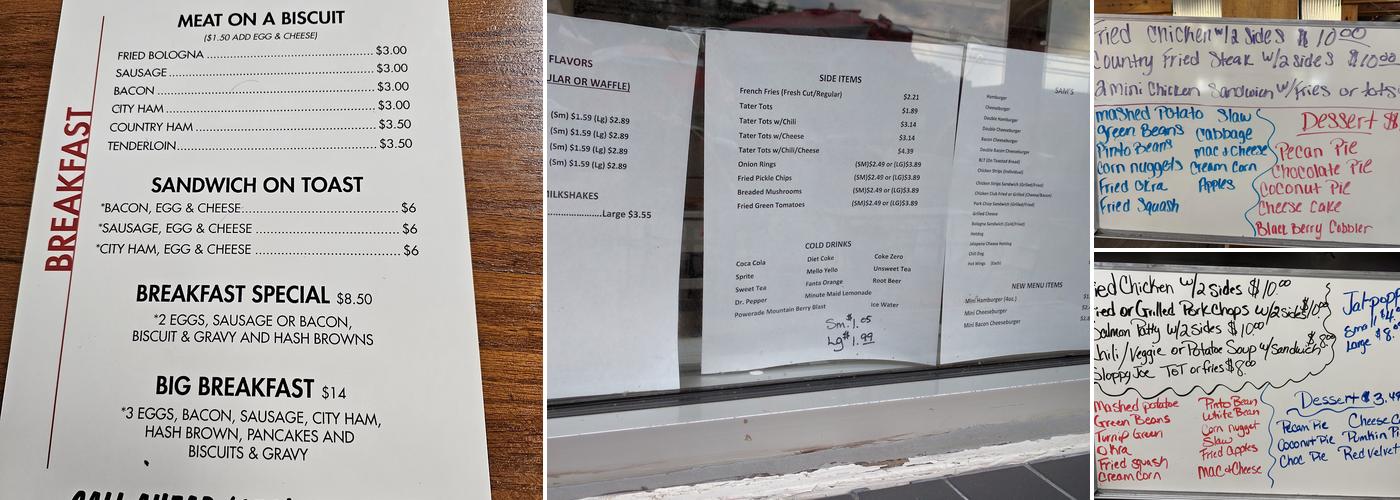 MEAT ON A BISCUIT
($1.50 ADD EGG & CHEESE)
FRIED BOLOGNA $3.00
SAUSAGE $3.00
BACON $3.00
CITY HAM $3.00
COUNTRY HAM $3.50
TENDERLOIN $3.50
BREAKFAST
SANDWICH ON TOAST
*BACON, EGG & CHEESE $6
*SAUSAGE, EGG & CHEESE $6
*CITY HAM, EGG & CHEESE $6
BREAKFAST SPECIAL $8.50
*2 EGGS, SAUSAGE OR BACON,
BISCUIT & GRAVY AND HASH BROWNS
BIG BREAKFAST $14
*3 EGGS, BACON, SAUSAGE, CITY HAM,
HASH BROWN, PANCAKES AND
BISCUITS & GRAVY
FLAVORS
ULAR OR WAFFLE)
(Sm) $1.59 (Lg) $2.89
(Sm) $1.59 (Lg) $2.89
(Sm) $1.59 (Lg) $2.89
(Sm) $1.59 (Lg) $2.89
MILKSHAKES
Large $3.55
SIDE ITEMS
French Fries (Fresh Cut/Regular) $2.21
Tater Tots $1.89
Tater Tots w/Chili $3.14
Tater Tots w/Cheese $3.14
Tater Tots w/Chili/Cheese $4.39
Onion Rings (SM)$2.49 or (LG)$3.89
Fried Pickle Chips (SM)$2.49 or (LG)$3.89
Breaded Mushrooms (SM)$2.49 or (LG)$3.89
Fried Green Tomatoes (SM)$2.49 or (LG)$3.89
COLD DRINKS
Coca Cola Diet Coke Coke Zero
Sprite Mello Yello Unsweet Tea
Sweet Tea Fanta Orange Root Beer
Dr. Pepper Minute Maid Lemonade
Powerade Mountain Berry Blast Ice Water
Sm. $1.05
Lg $1.99
SAM'S
Hamburger
Cheeseburger
Double Hamburger
Double Cheeseburger
Bacon Cheeseburger
Double Bacon Cheeseburger
BLT (On Toasted Bread)
Chicken Strips (Individual)
Chicken Strips Sandwich (Grilled/Fried)
Chicken Club Fried or Grilled (Cheese/Bacon)
Pork Chop Sandwich (Grilled/Fried)
Grilled Cheese
Bologna Sandwich (Cold/Fried)
Hotdog
Jalapeno Cheese Hotdog
Chili Dog
Hot Wings (Each)
NEW MENU ITEMS
Mini Hamburger (4oz.)
Mini Cheeseburger
Mini Bacon Cheeseburger
ried Chicken w/2 Sides $10.00
Country Fried Steak w/2 sides $10.00
2 mini Chicken Sandwich w/Fries or tots
mashed Potato Slaw
green Beans Cabbage
Pinto Beans mac & Cheese
corn nuggets Cream Corn
Fried Okra Apples
Fried Squash
Dessert
Pecan Pie
Chocolate Pie
Coconut Pie
Cheese Cake
Black Berry Cobbler
ied Chicken w/2 sides $10.00
ried or Grilled Pork Chops w/2 sides $10.00
Salmon Patty w/2 sides $10.00
hili/Veggie or Potatoe Soup w/Sandwich $8.00
Sloppy Joe TOT or fries $8.00
Small
Large $8.
Mashed potatoe Pinto Bean
Green Beans White Bean
Turnip Green Corn nugget
Okra Slaw
Fried squash Fried apples
Cream Corn Mac & Cheese
Dessert $3.49
Pecan Pie Cheese C
Coconut Pie Pumkin Pi
Choc Pie Red velvet